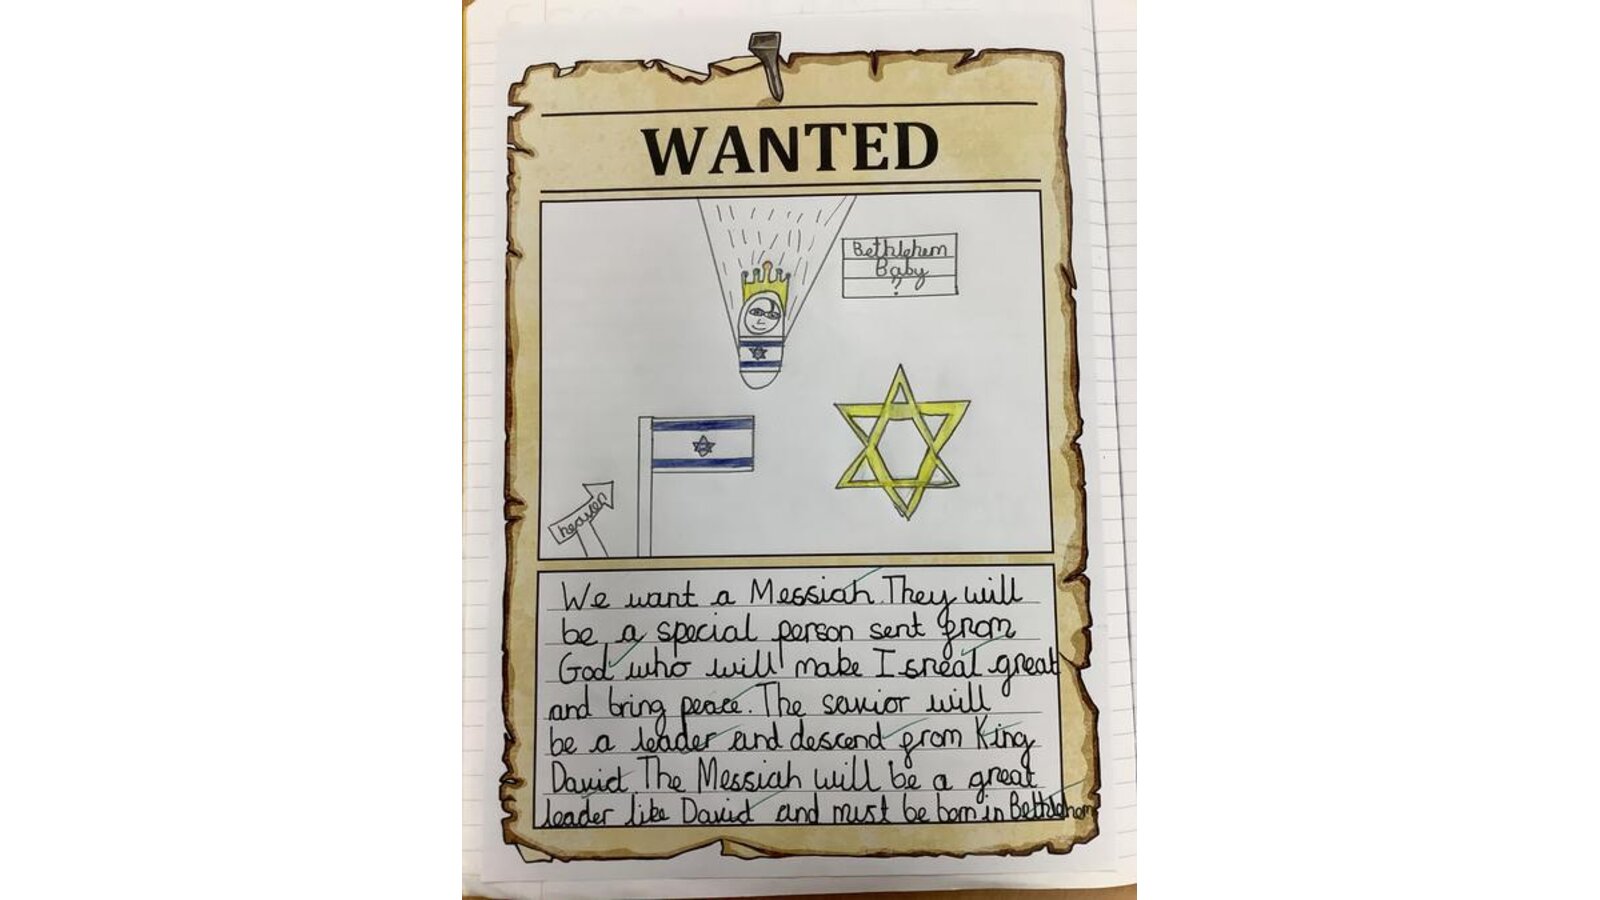 WANTED
Bethlehem
Baby
?
heaven
We want a Messiah. They will
be a special person sent from
God who will make Isreal great
and bring peace. The savior will
be a leader and descend from King
David. The Messiah will be a great
leader like David and must be born in Bethlehem